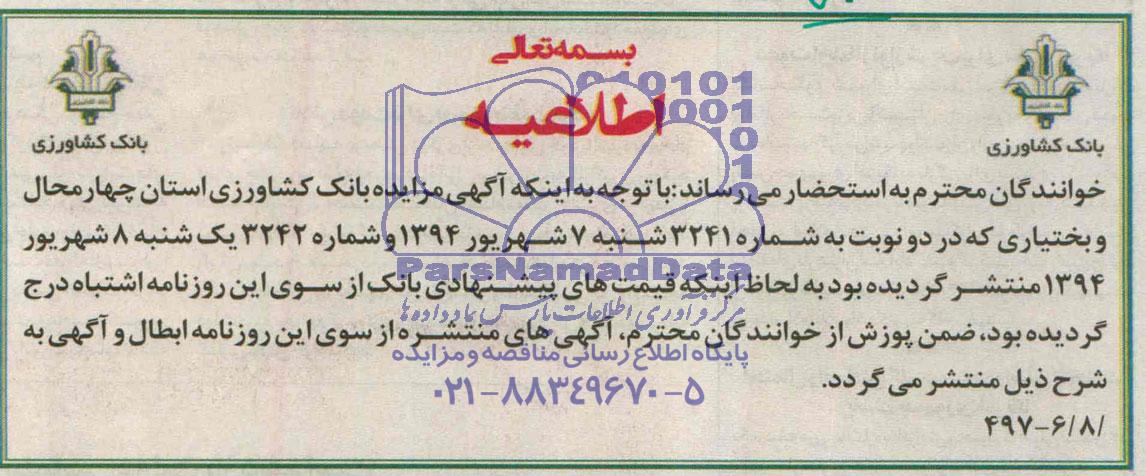 بسمه تعالی
اطلاعیه
بانک کشاورزی
بانک کشاورزی
خوانندگان محترم به استحضار می رساند: با توجه به اینکه آگهی مزایده بانک کشاورزی استان چهار محال
و بختیاری که در دو نوبت به شماره ۳۲۴۱ شنبه ۷ شهریور ۱۳۹۴ و شماره ۳۲۴۲ یک شنبه ۸ شهریور
۱۳۹۴ منتشر گردیده بود به لحاظ اینکه قیمت های پیشنهادی بانک از سوی این روزنامه اشتباه درج
گردیده بود، ضمن پوزش از خوانندگان محترم، آگهی های منتشره از سوی این روزنامه ابطال و آگهی به
شرح ذیل منتشر می گردد.
۴۹۷-۶/۸/
010101
001
10
ParsNamadData
مرکز فرآوری اطلاعات پارس نماد داده ها
پایگاه اطلاع رسانی مناقصه و مزایده
۰۲۱-۸۸۳۴۹۶۷۰-۵